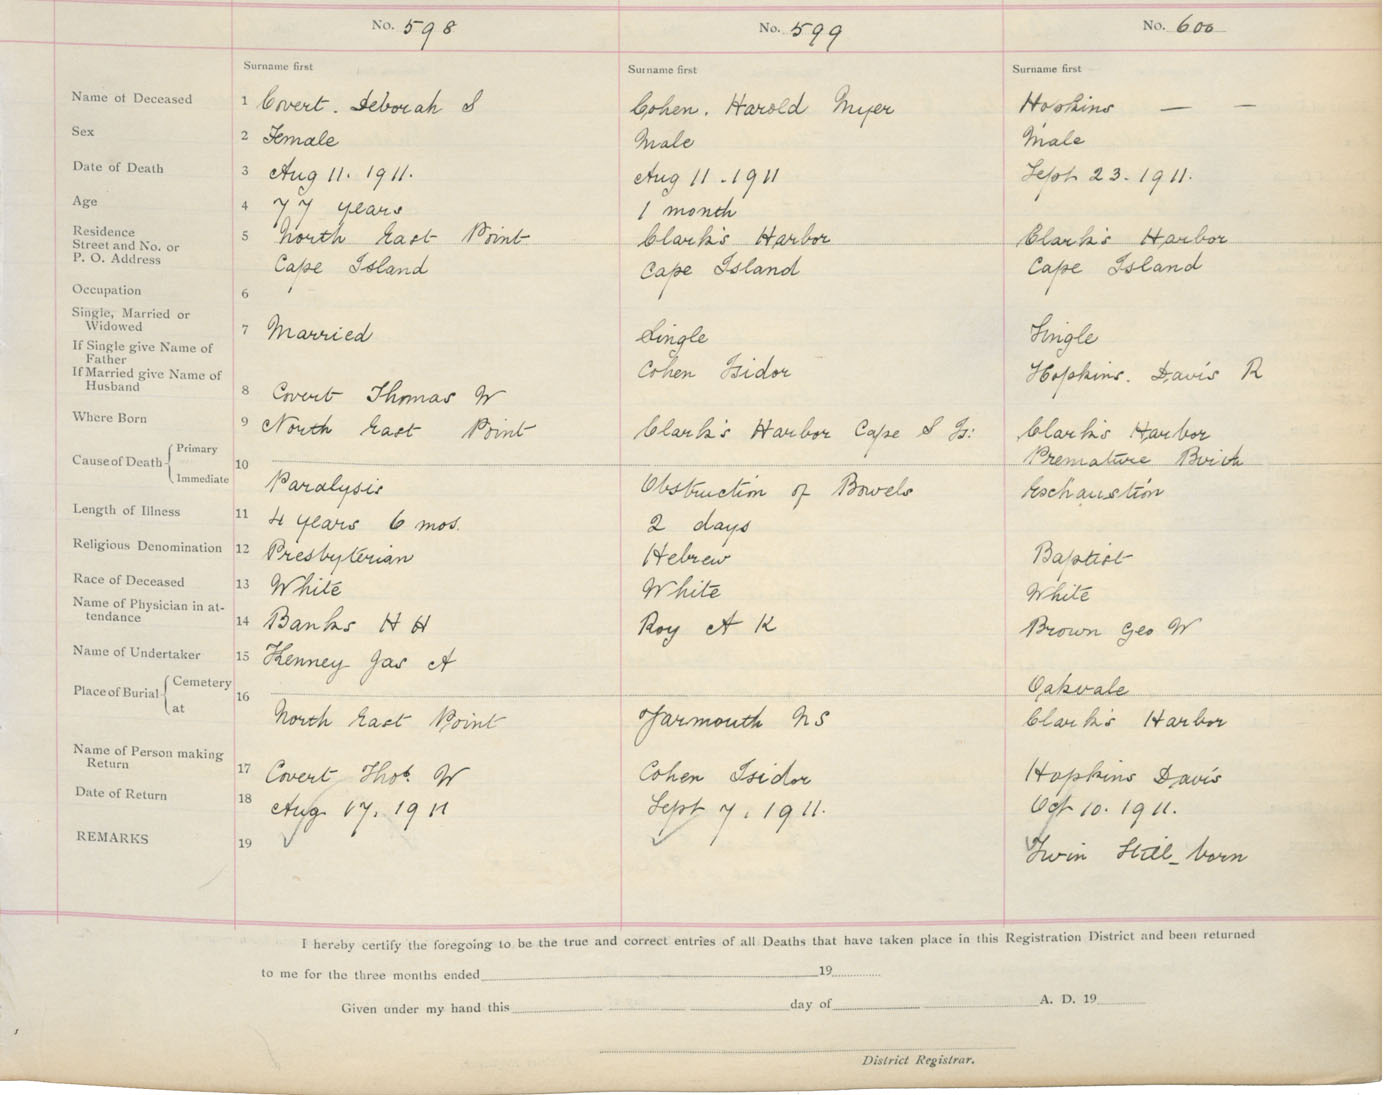 No. 598 No. 599 No. 600
Surname first Surname first Surname first
Name of Deceased 1 Covert. Deborah S Cohen. Harold Myer Hopkins — —
Sex 2 Female Male Male
Date of Death 3 Aug 11. 1911. Aug 11. 1911 Sept 23. 1911.
Age 4 77 years 1 month
Residence 5 North East Point Clark's Harbor Clark's Harbor
Street and No. or
P. O. Address Cape Island Cape Island Cape Island
Occupation 6
Single, Married or
Widowed 7 Married Single Single
If Single give Name of
Father Cohen Isidor Hopkins. Davis R
If Married give Name of
Husband 8 Covert Thomas W
Where Born 9 North East Point Clark's Harbor Cape S Is: Clark's Harbor
Cause of Death Primary 10 Premature Birth
Immediate Paralysis Obstruction of Bowels Exchaustion
Length of Illness 11 4 years 6 mos. 2 days
Religious Denomination 12 Presbyterian Hebrew Baptist
Race of Deceased 13 White White White
Name of Physician in at-
tendance 14 Banks H H Roy A K Brown Geo W
Name of Undertaker 15 Kenney Jas A
Place of Burial Cemetery 16 Oakvale
at North East Point Yarmouth NS Clark's Harbor
Name of Person making
Return 17 Covert Thos. W Cohen Isidor Hopkins Davis
Date of Return 18 Aug 17, 1911 Sept 7, 1911. Oct 10. 1911.
REMARKS 19 Twin Still-born
I hereby certify the foregoing to be the true and correct entries of all Deaths that have taken place in this Registration District and been returned
to me for the three months ended 19
Given under my hand this day of A. D. 19
District Registrar.